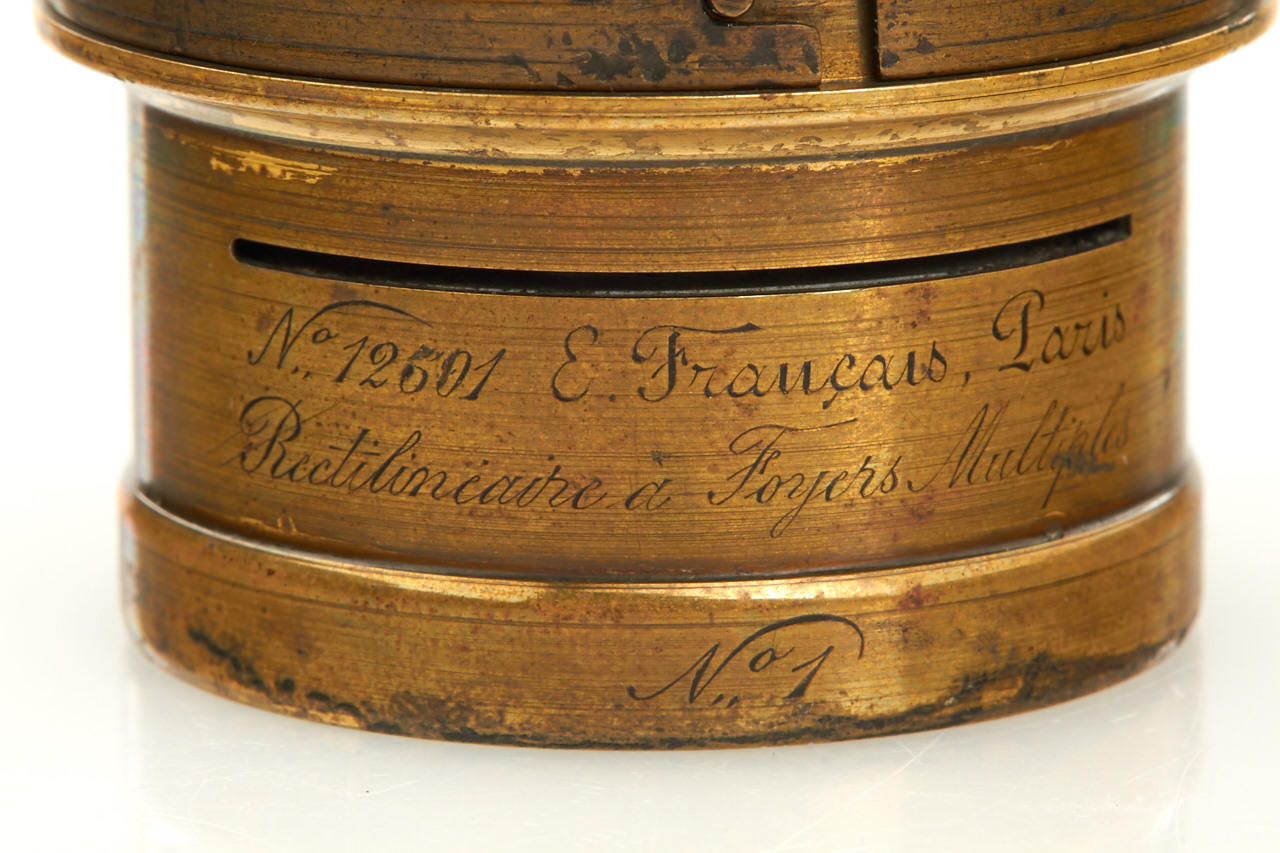 No 12501 E. Français, Paris
Rectilineaire a Foyers Multiples
No 1